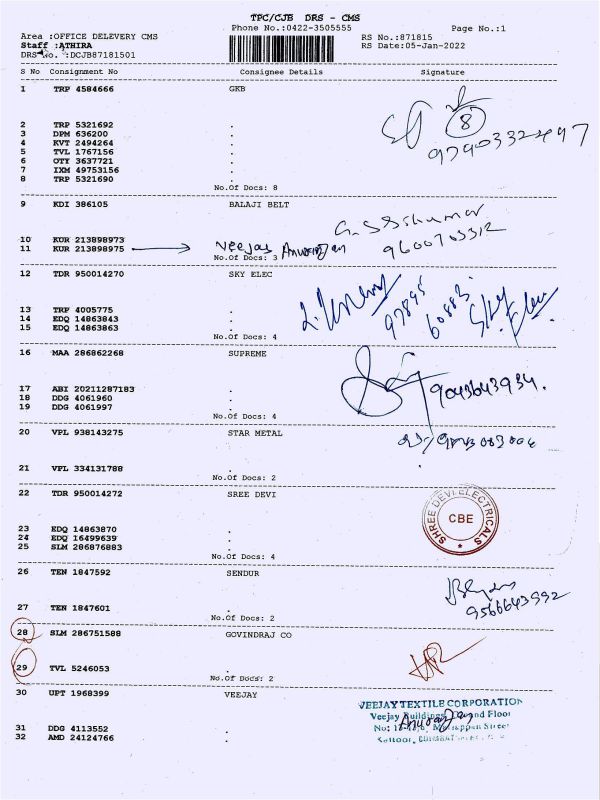 TPC/CJB DRS - CMS
Phone No.:0422-3505555 Page No.:1
Area :OFFICE DELEVERY CMS
RS No.:871815
Staff :ATHIRA
RS Date:05-Jan-2022
DRS No. :DCJB87181501
S No Consignment No Consignee Details Signature
1 TRP 4584666 GKB
8
2 TRP 5321692 .
3 DPM 636200 .
4 KVT 2494264 .
5 TVL 1767156 .
6 OTY 3637721 .
7 IXM 49753156 .
8 TRP 5321690 .
No.Of Docs: 8
9 KDI 386105 BALAJI BELT
10 KUR 213898973 .
11 KUR 213898975 Veejay
9600703312
No.Of Docs: 3
12 TDR 950014270 SKY ELEC
13 TRP 4005775 .
14 EDQ 14863843 .
15 EDQ 14863863 .
No.Of Docs: 4
16 MAA 286862268 SUPREME
9043643934.
17 ABI 20211287183 .
18 DDG 4061960 .
19 DDG 4061997 .
No.Of Docs: 4
20 VPL 938143275 STAR METAL
21 VPL 334131788 .
No.Of Docs: 2
22 TDR 950014272 SREE DEVI
SHREE DEVI ELECTRICALS
CBE
23 EDQ 14863870 .
24 EDQ 16499639 .
25 SLM 286876883 .
No.Of Docs: 4
26 TEN 1847592 SENDUR
9566643992
27 TEN 1847601 .
No.Of Docs: 2
28 SLM 286751588 GOVINDRAJ CO
29 TVL 5246053 .
No.Of Docs: 2
30 UPT 1968399 VEEJAY
VEEJAY TEXTILE CORPORATION
Veejay Buildings Floor
31 DDG 4113552 .
32 AMD 24124766 .